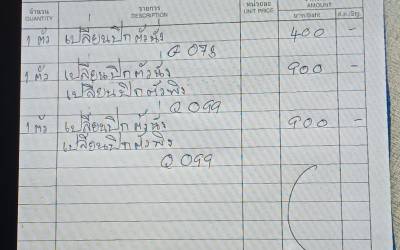 จำนวน รายการ หน่วยละ AMOUNT
QUANTITY DESCRIPTION UNIT PRICE บาท/Baht ส.ต./Stg.
1 ตัว เปลี่ยนปีกตัวนั่ง 400 -
Q 078
1 ตัว เปลี่ยนปีกตัวนั่ง 900 -
เปลี่ยนปีกตัวพิง
Q 099
1 ตัว เปลี่ยนปีกตัวนั่ง 900 -
เปลี่ยนปีกตัวพิง
Q 099